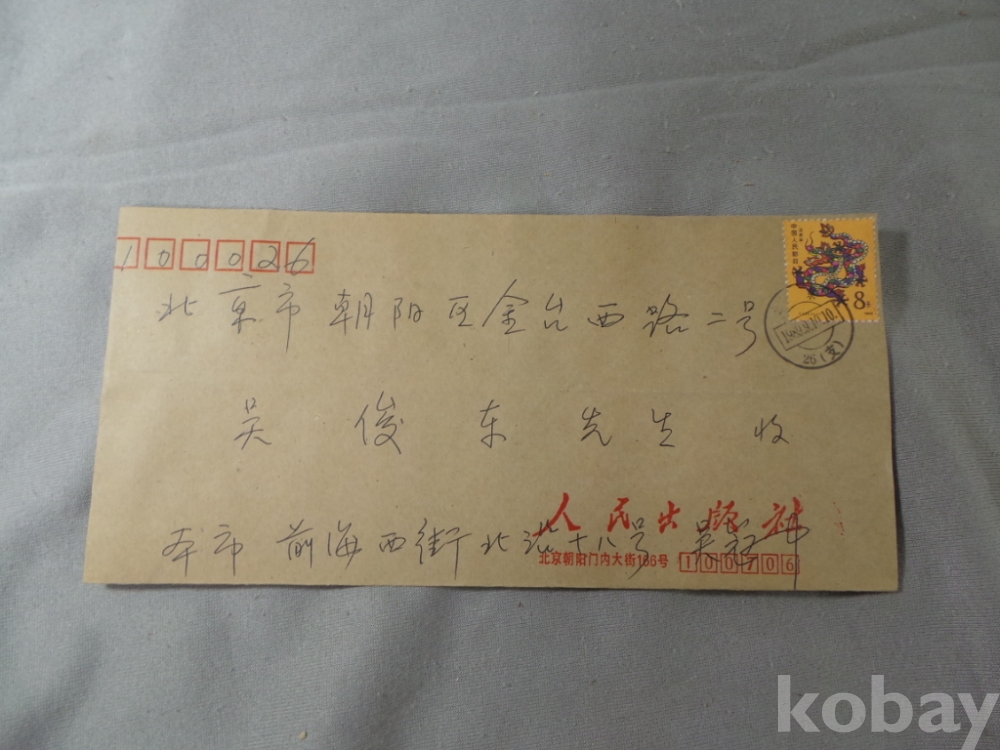 100026
中国人民邮政
8分
北京市朝阳区金台西路二号
26(支)
吴俊东先生收
人民出版社
本市前海西街北沿十八号 吴
北京朝阳门内大街166号 100706
kobay